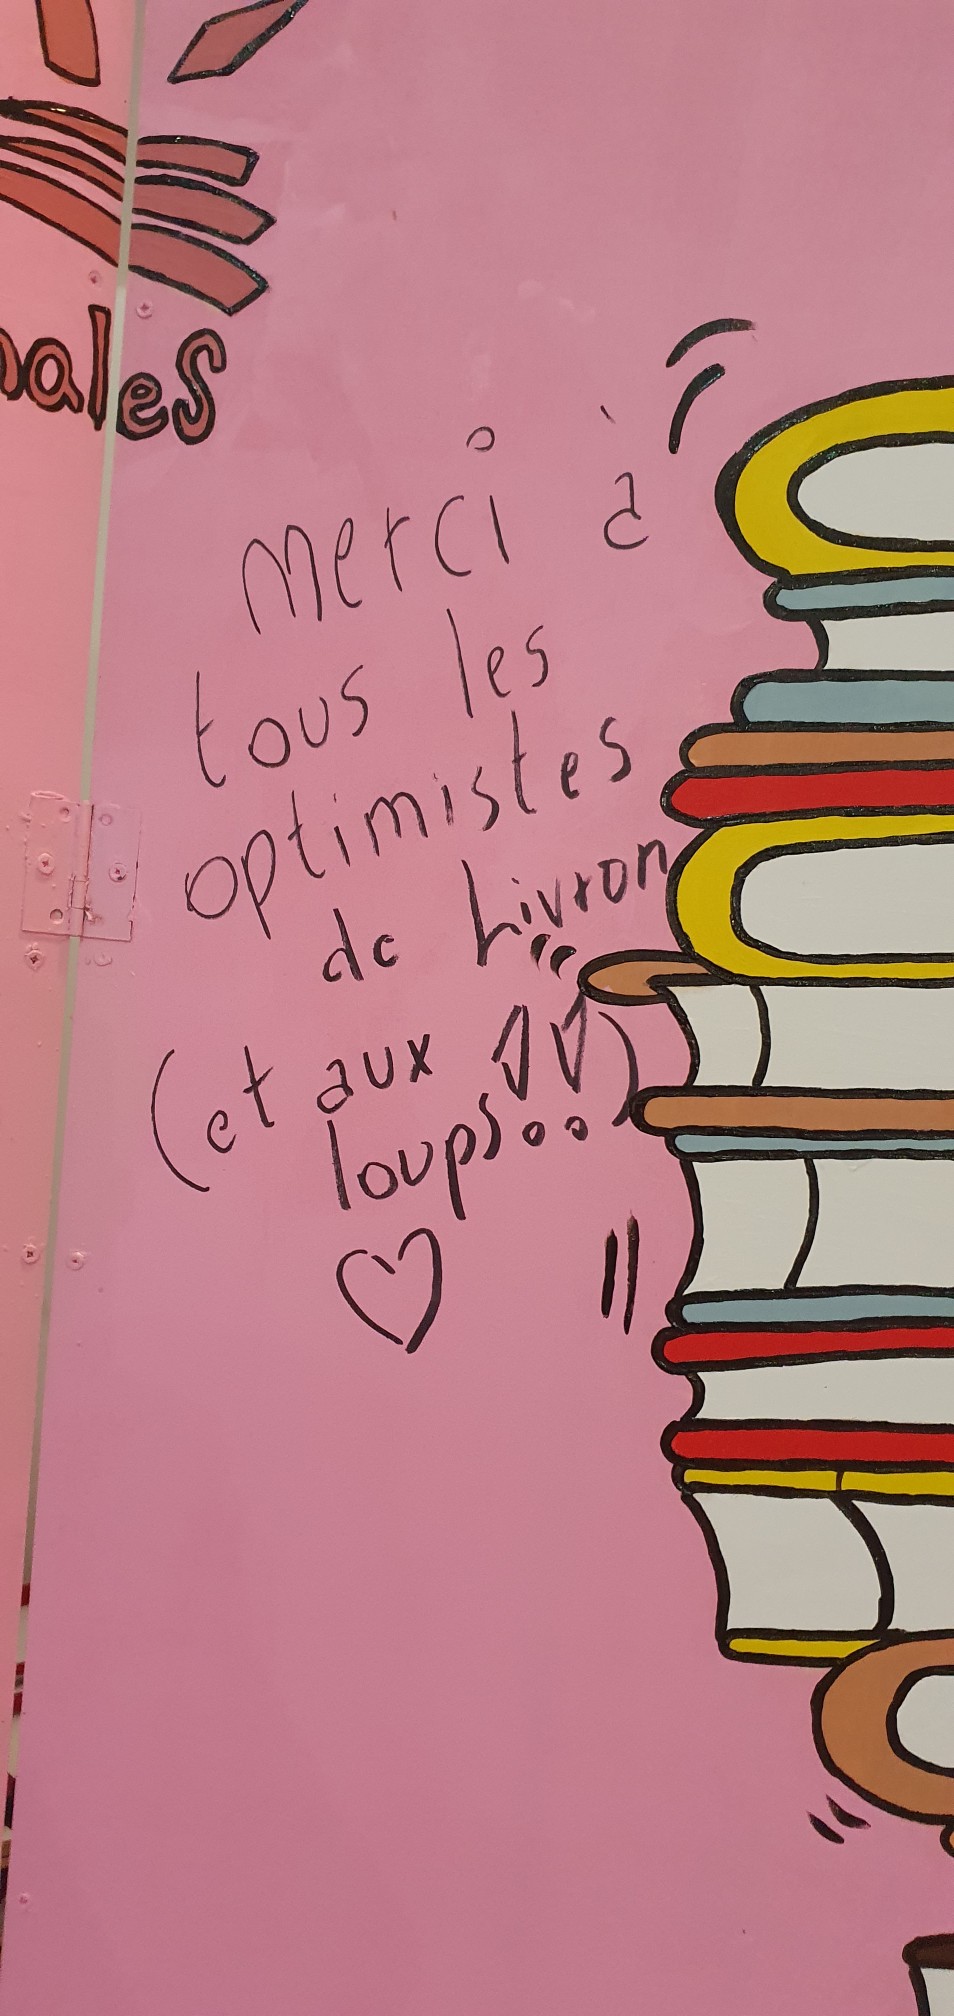 nales
merci à
tous les
optimistes
de Livron
(et aux
loups!!)